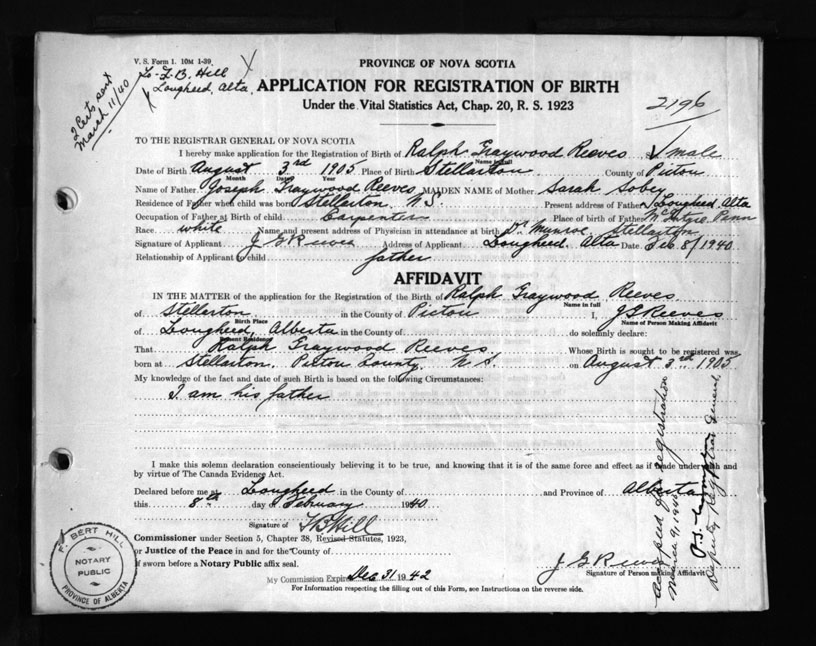 V. S. Form 1. 10M 1-39
To F. B. Hill
Lougheed, Alta.
2 Certs sent
March 11/40
PROVINCE OF NOVA SCOTIA
APPLICATION FOR REGISTRATION OF BIRTH
Under the Vital Statistics Act, Chap. 20, R. S. 1923
2196
TO THE REGISTRAR GENERAL OF NOVA SCOTIA
I hereby make application for the Registration of Birth of Ralph Graywood Reeves male
Name in full
Date of Birth August 3rd 1905 Place of Birth Stellarton County of Pictou
Month Date Year
Name of Father Joseph Graywood Reeves MAIDEN NAME of Mother Sarah Sobey
Residence of Father when child was born Stellarton N.S. Present address of Father Lougheed, Alta
Occupation of Father at Birth of child Carpenter Place of birth of Father Penn
Race white Name and present address of Physician in attendance at birth Dr. Munroe, Stellarton
Signature of Applicant J G Reeves Address of Applicant Lougheed, Alta Date Feb 8/1940
Relationship of Applicant to child father
AFFIDAVIT
IN THE MATTER of the application for the Registration of the Birth of Ralph Graywood Reeves
Name in full
of Stellarton in the County of Pictou I, J G Reeves
Birth Place Name of Person Making Affidavit
of Lougheed, Alberta in the County of do solemnly declare:
Present Residency
That Ralph Graywood Reeves Whose Birth is sought to be registered was
born at Stellarton, Pictou County, N.S. on August 3rd 1905
My knowledge of the fact and date of such Birth is based on the following Circumstances:
I am his father
I make this solemn declaration conscientiously believing it to be true, and knowing that it is of the same force and effect as if made under oath and
by virtue of The Canada Evidence Act.
Declared before me at Lougheed in the County of and Province of Alberta
this 8th day of February 1940
Signature of F B Hill
Commissioner under Section 5, Chapter 38, Revised Statutes, 1923,
or Justice of the Peace in and for the County of
if sworn before a Notary Public affix seal.
J G Reeves
Signature of Person making Affidavit
My Commission Expires Dec 31 1942
For Information respecting the filling out of this Form, see Instructions on the reverse side.
F. BERT HILL
NOTARY
PUBLIC
PROVINCE OF ALBERTA
Accepted for registration
March 9, 1940
Deputy Registrar General